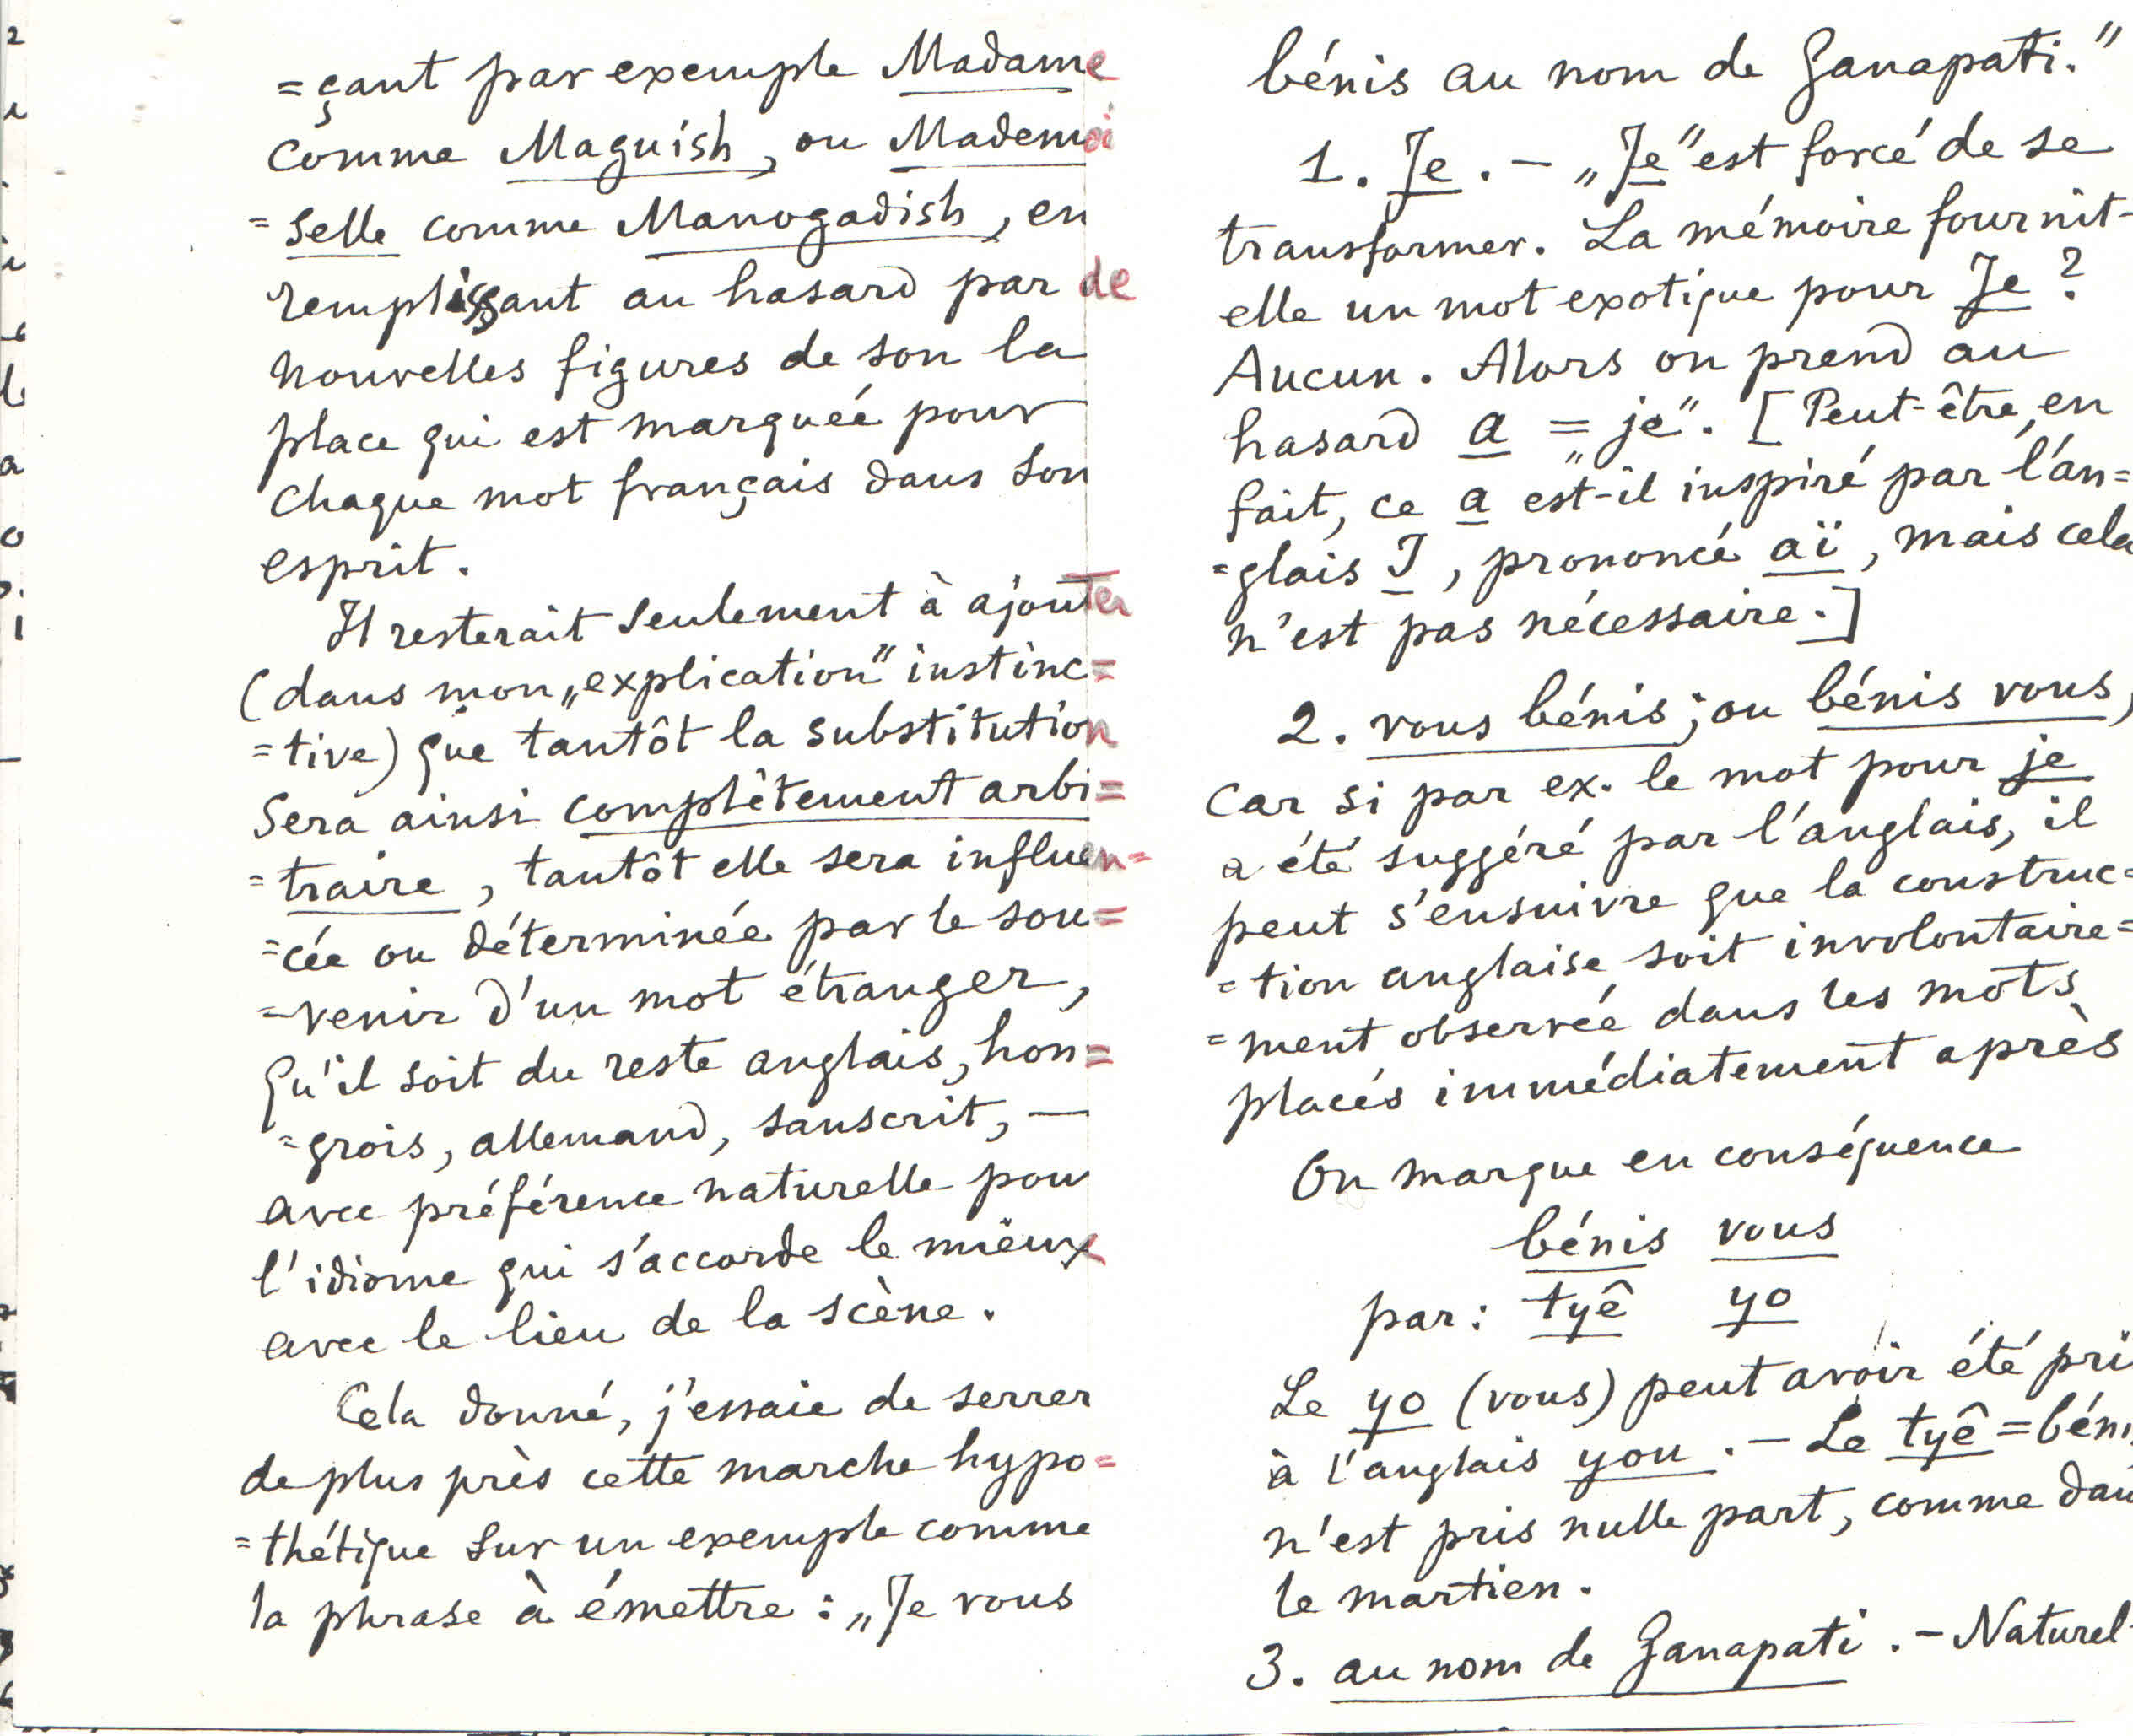 =çant par exemple Madame
comme Maguish, ou Mademoi
=selle comme Manogadish, en
remplissant au hasard par de
nouvelles figures de son la
place qui est marquée pour
chaque mot français dans son
esprit.
Il resterait seulement à ajouter
(dans mon „explication" instinc=
=tive) que tantôt la substitution
sera ainsi complètement arbi=
=traire, tantôt elle sera influen=
=cée ou déterminée par le sou=
=venir d'un mot étranger,
qu'il soit du reste anglais, hon=
=grois, allemand, sanscrit, —
avec préférence naturelle pour
l'idiome qui s'accorde le mieux
avec le lieu de la scène.
Cela donné, j'essaie de serrer
de plus près cette marche hypo=
=thétique sur un exemple comme
la phrase à émettre : „Je vous
bénis au nom de Ganapati."
1. Je. — „Je" est forcé de se
transformer. La mémoire fournit-
elle un mot exotique pour Je ?
Aucun. Alors on prend au
hasard a = „je". [Peut-être, en
fait, ce a est-il inspiré par l'an=
=glais I, prononcé aï, mais cela
n'est pas nécessaire.]
2. vous bénis ; ou bénis vous,
car si par ex. le mot pour je
a été suggéré par l'anglais, il
peut s'ensuivre que la construc=
=tion anglaise soit involontaire=
=ment observée dans les mots
placés immédiatement après
On marque en conséquence
bénis vous
par : tyê yo
Le yo (vous) peut avoir été pri
à l'anglais you. — Le tyê = béni
n'est pris nulle part, comme dan
le martien.
3. au nom de Ganapati. — Naturel